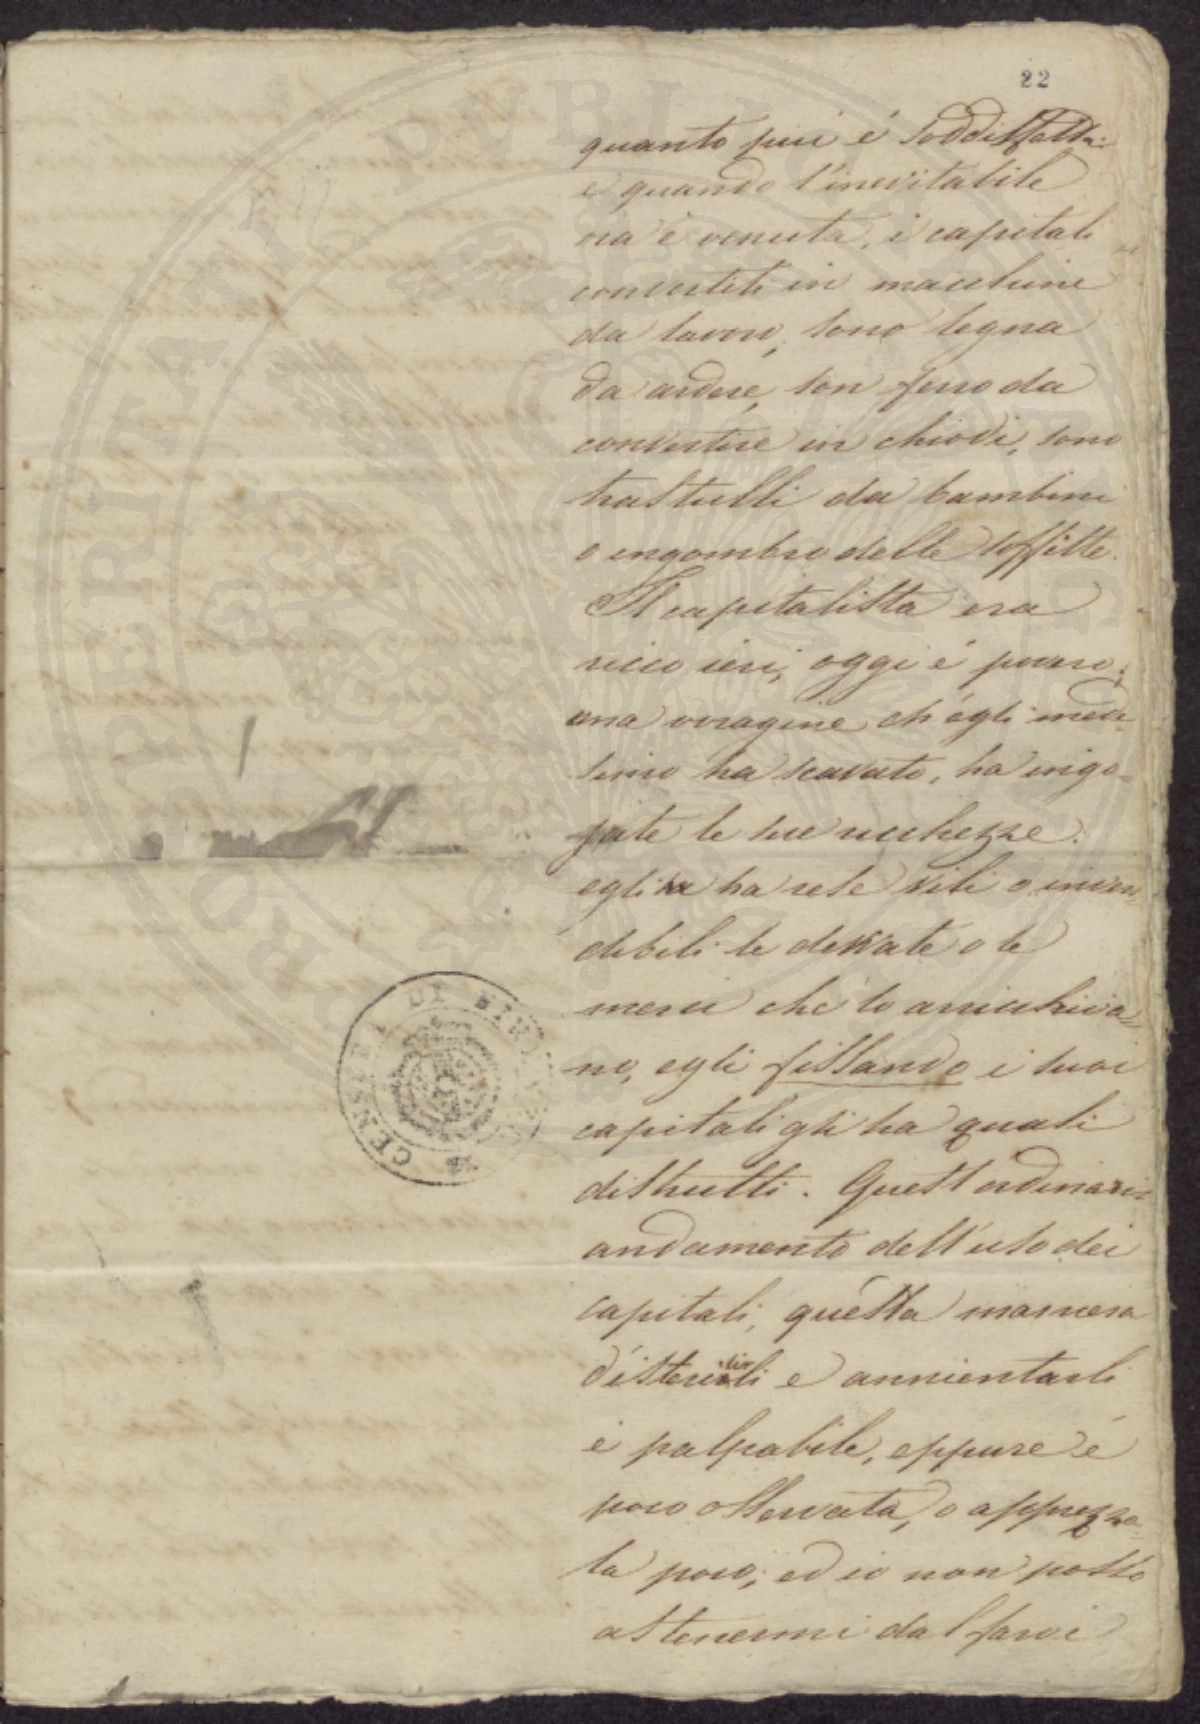 22
quanto più é soddisfatta:
e quando l'inevitabile
ora è venuta, i capitali
convertiti in macchine
da lavoro, sono legna
da ardere, son ferro da
convertire in chiodi, sono
trastulli da bambini
o ingombro delle soffitte.
Il capitalista era
ricco ieri, oggi é povero;
una voragine ch'egli mede-
simo ha scavato, ha ingo-
jate le sue ricchezze.
egli ha rese vili o inven-
dibili le derrate o le
merci che lo arricchiva-
no, egli fissando i suoi
capitali gli ha quasi
distrutti. Quest'ordinario
andamento dell'uso dei
capitali, questa maniera
d'isterilirli e annientarli
è palpabile, eppure é
poco osservata, o apprezza-
ta poco; ed io non posso
astenermi dal farvi
CENSERE DI
PERITATI PVBLICAE